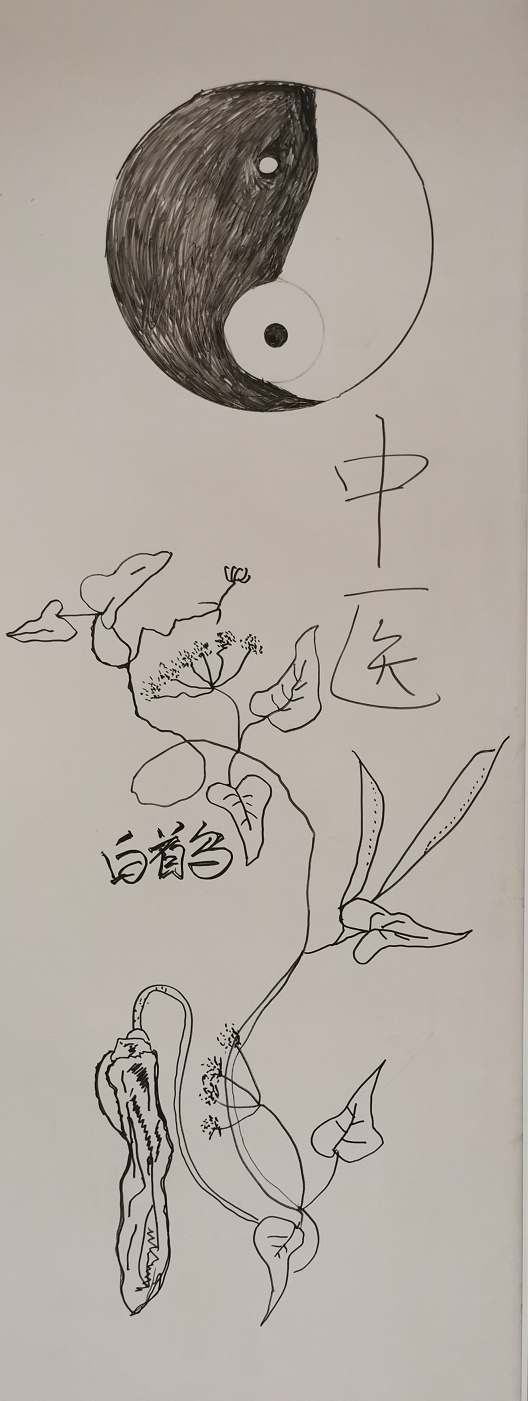 中医
白首乌